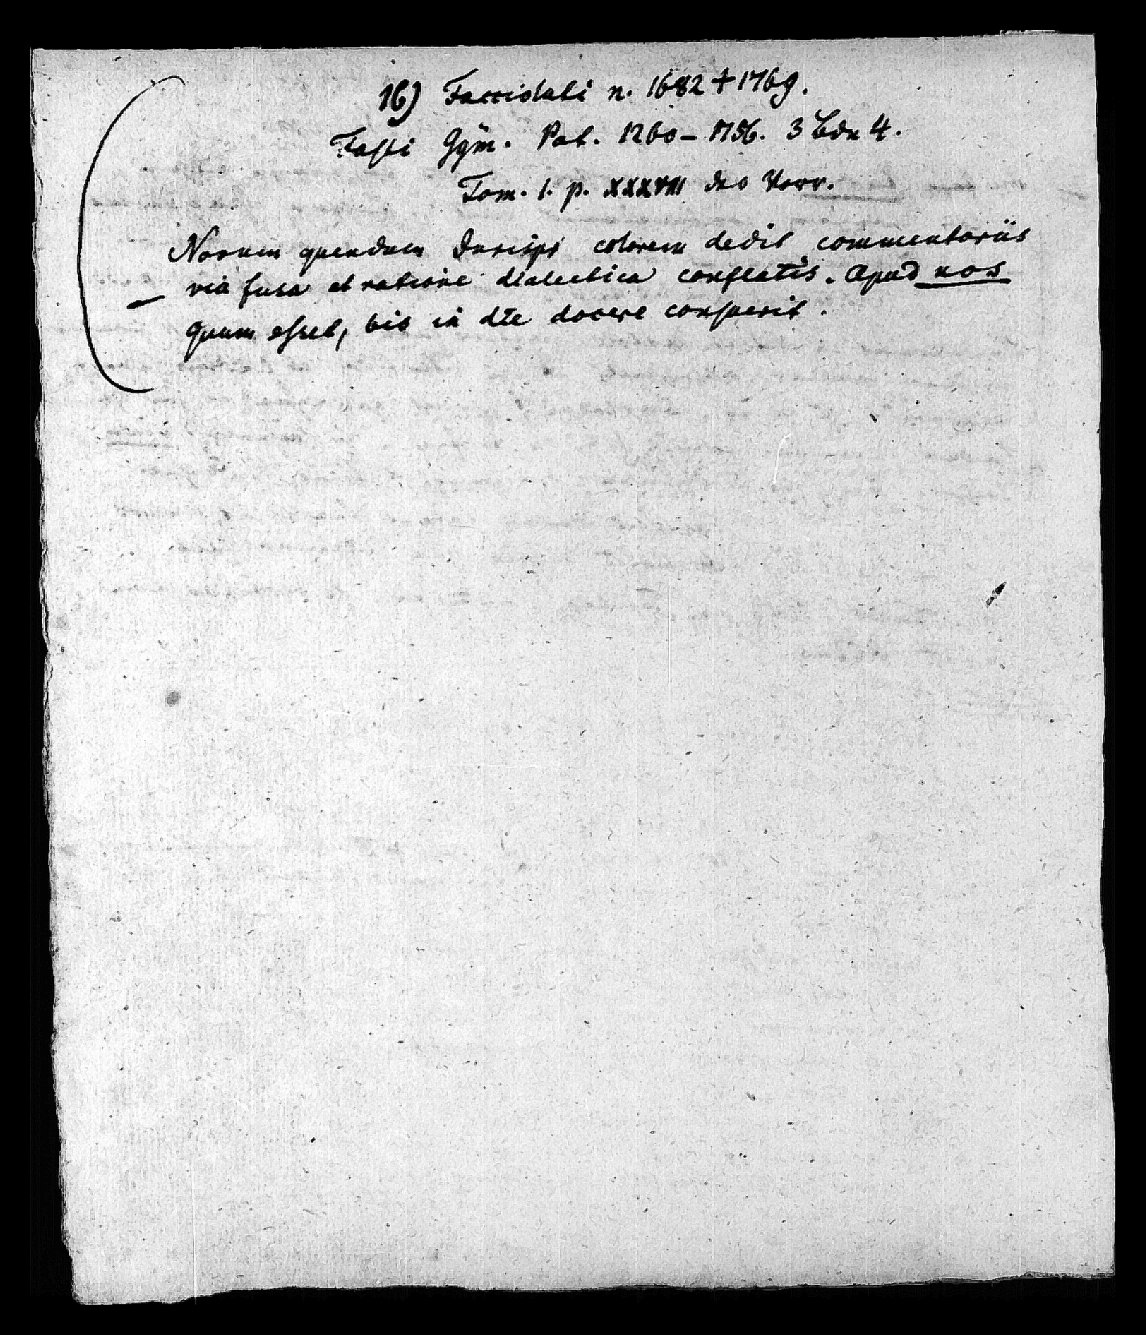 16) Facciolati n. 1682 † 1769.
Fasti Gym̄. Pat. 1260 – 1756. 3 Bde 4.
Tom. 1. p. XXXVII des Vorr.
Novum quendam colorem dedit commentariis
via fusa et ratione dialectica conflatis. Apud nos
quum esset, bis in die docere consuevit.